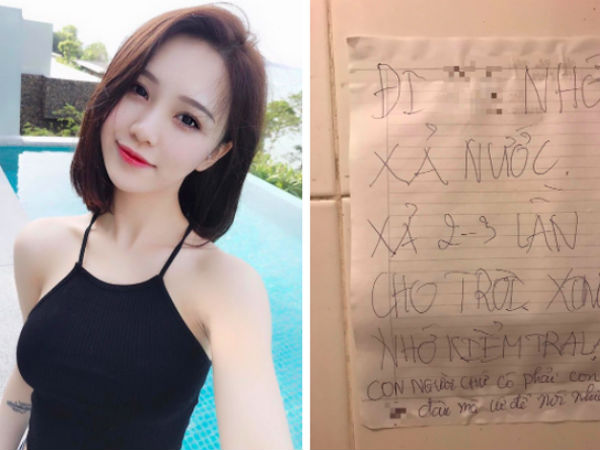 ĐI NHỚ
XẢ NƯỚC.
XẢ 2-3 LẦN
CHO TRÔI XON
NHỚ KIỂM TRA LẠ
CON NGƯỜI CHỨ CÓ PHẢI CON
đâu mà để nơi